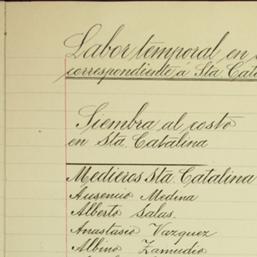 Labor temporal en
correspondiente á Sta Cata
Siembra al costo
en Sta Catalina
Medieros Sta Catalina
Ausencio Medina
Alberto Salas.
Anastasio Vazquez
Albino Zamudio